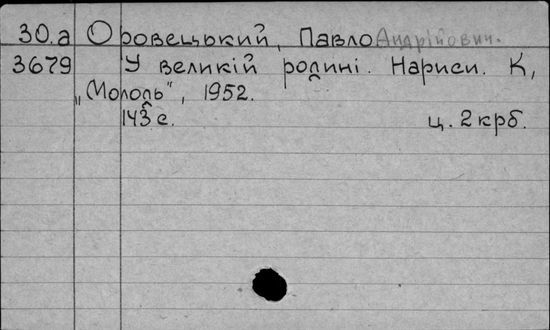 30.а Оровецький, Павло Андрійович.
3679 У великій родині. Нариси. К,
„Молодь", 1952.
143 с. ц. 2 крб.